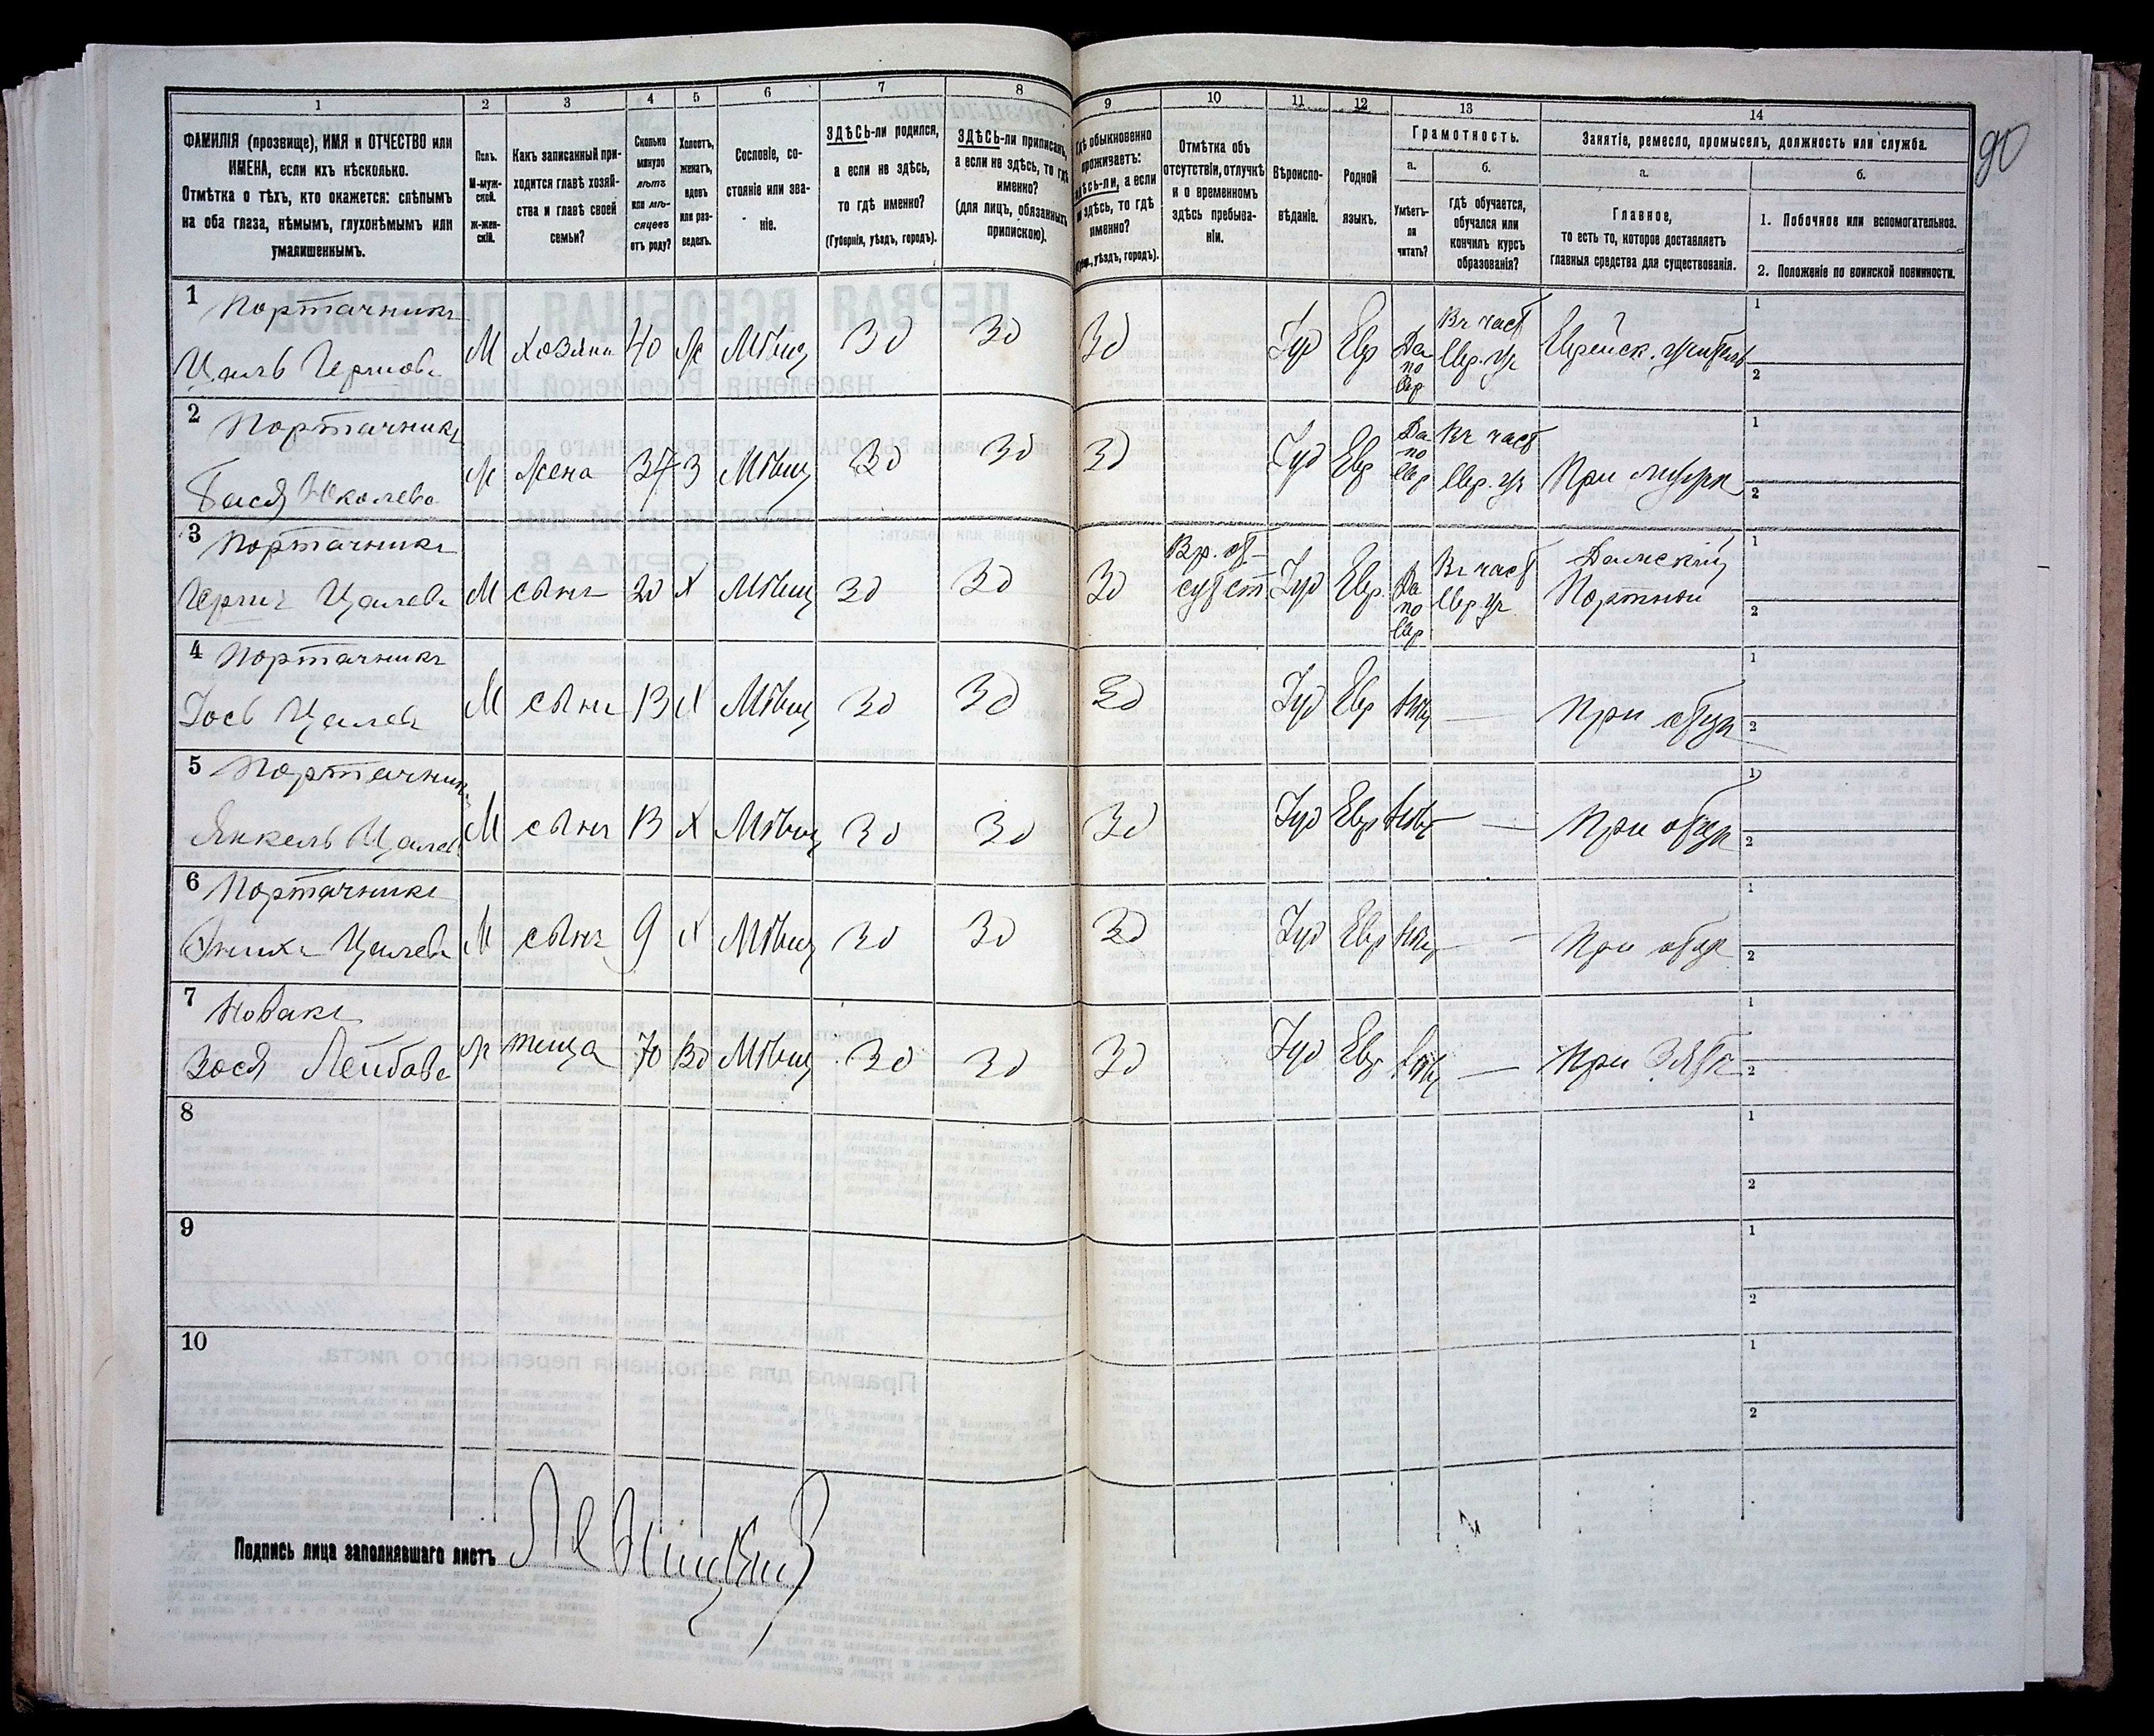 90
1 2 3 4 5 6 7 8 9 10 11 12 13 14
ФАМИЛІЯ (прозвище), ИМЯ и ОТЧЕСТВО или
ИМЕНА, если ихъ нѣсколько.
Отмѣтка о тѣхъ, кто окажется: слѣпымъ
на оба глаза, нѣмымъ, глухонѣмымъ или
умалишеннымъ.
Полъ.
М-муж-
ской.
Ж-жен-
скій.
Какъ записанный при-
ходится главѣ хозяй-
ства и главѣ своей
семьи?
Сколько
минуло
лѣтъ
или мѣ-
сяцевъ
отъ роду?
Холостъ,
женатъ,
вдовъ
или раз-
веденъ.
Сословіе, со-
стояніе или зва-
ніе.
ЗДѢСЬ-ли родился,
а если не здѣсь,
то гдѣ именно?
(Губернія, уѣздъ, городъ).
ЗДѢСЬ-ли приписанъ,
а если не здѣсь, то гдѣ
именно?
(для лицъ, обязанныхъ
припискою).
Гдѣ обыкновенно
проживаетъ:
здѣсь-ли, а если
не здѣсь, то гдѣ
именно?
(Губ., уѣздъ, городъ).
Отмѣтка объ
отсутствіи, отлучкѣ
и о временномъ
здѣсь пребыва-
ніи.
Вѣроиспо-
вѣданіе.
Родной
языкъ.
Грамотность.
а.
Умѣетъ-
ли
читать?
б.
гдѣ обучается,
обучался или
кончилъ курсъ
образованія?
Занятіе, ремесло, промыселъ, должность или служба.
а.
Главное,
то есть то, которое доставляетъ
главныя средства для существованія.
б.
1. Побочное или вспомогательное.
2. Положеніе по воинской повинности.
1 Портачникъ
Цаль Гершовъ М хозяинъ 40 ж Мѣщ Зд Зд Зд Іуд Евр Да по Евр Въ част Евр. уч Еврейск. учитель 1 2
2 Портачникъ
Бася Юколева ж жена 37 З Мѣщ Зд Зд Зд Іуд Евр Да по Евр Въ част Евр. уч При мужѣ 1 2
3 Портачникъ
Гершъ Цалевъ М сынъ 20 Х Мѣщ Зд Зд Зд Вр. от- сутст Іуд Евр. Да по Евр Въ част Евр. уч Дамскій Портной 1 2
4 Портачникъ
Іось Цалевъ М сынъ 13 Х Мѣщ Зд Зд Зд Іуд Евр Нѣт — При отцѣ 1 2
5 Портачникъ
Янкель Цалев М сынъ 13 Х Мѣщ Зд Зд Зд Іуд Евр Нѣт — При отцѣ 1 2
6 Портачникъ
Цалевъ М сынъ 9 Х Мѣщ Зд Зд Зд Іуд Евр Нѣт — При отцѣ 1 2
7 Новакъ
Зося Лейбова ж теща 70 Вд Мѣщ Зд Зд Зд Іуд Евр Нѣт — При Зятѣ 1 2
8 1 2
9 1 2
10 1 2
Подпись лица заполнявшаго листъ